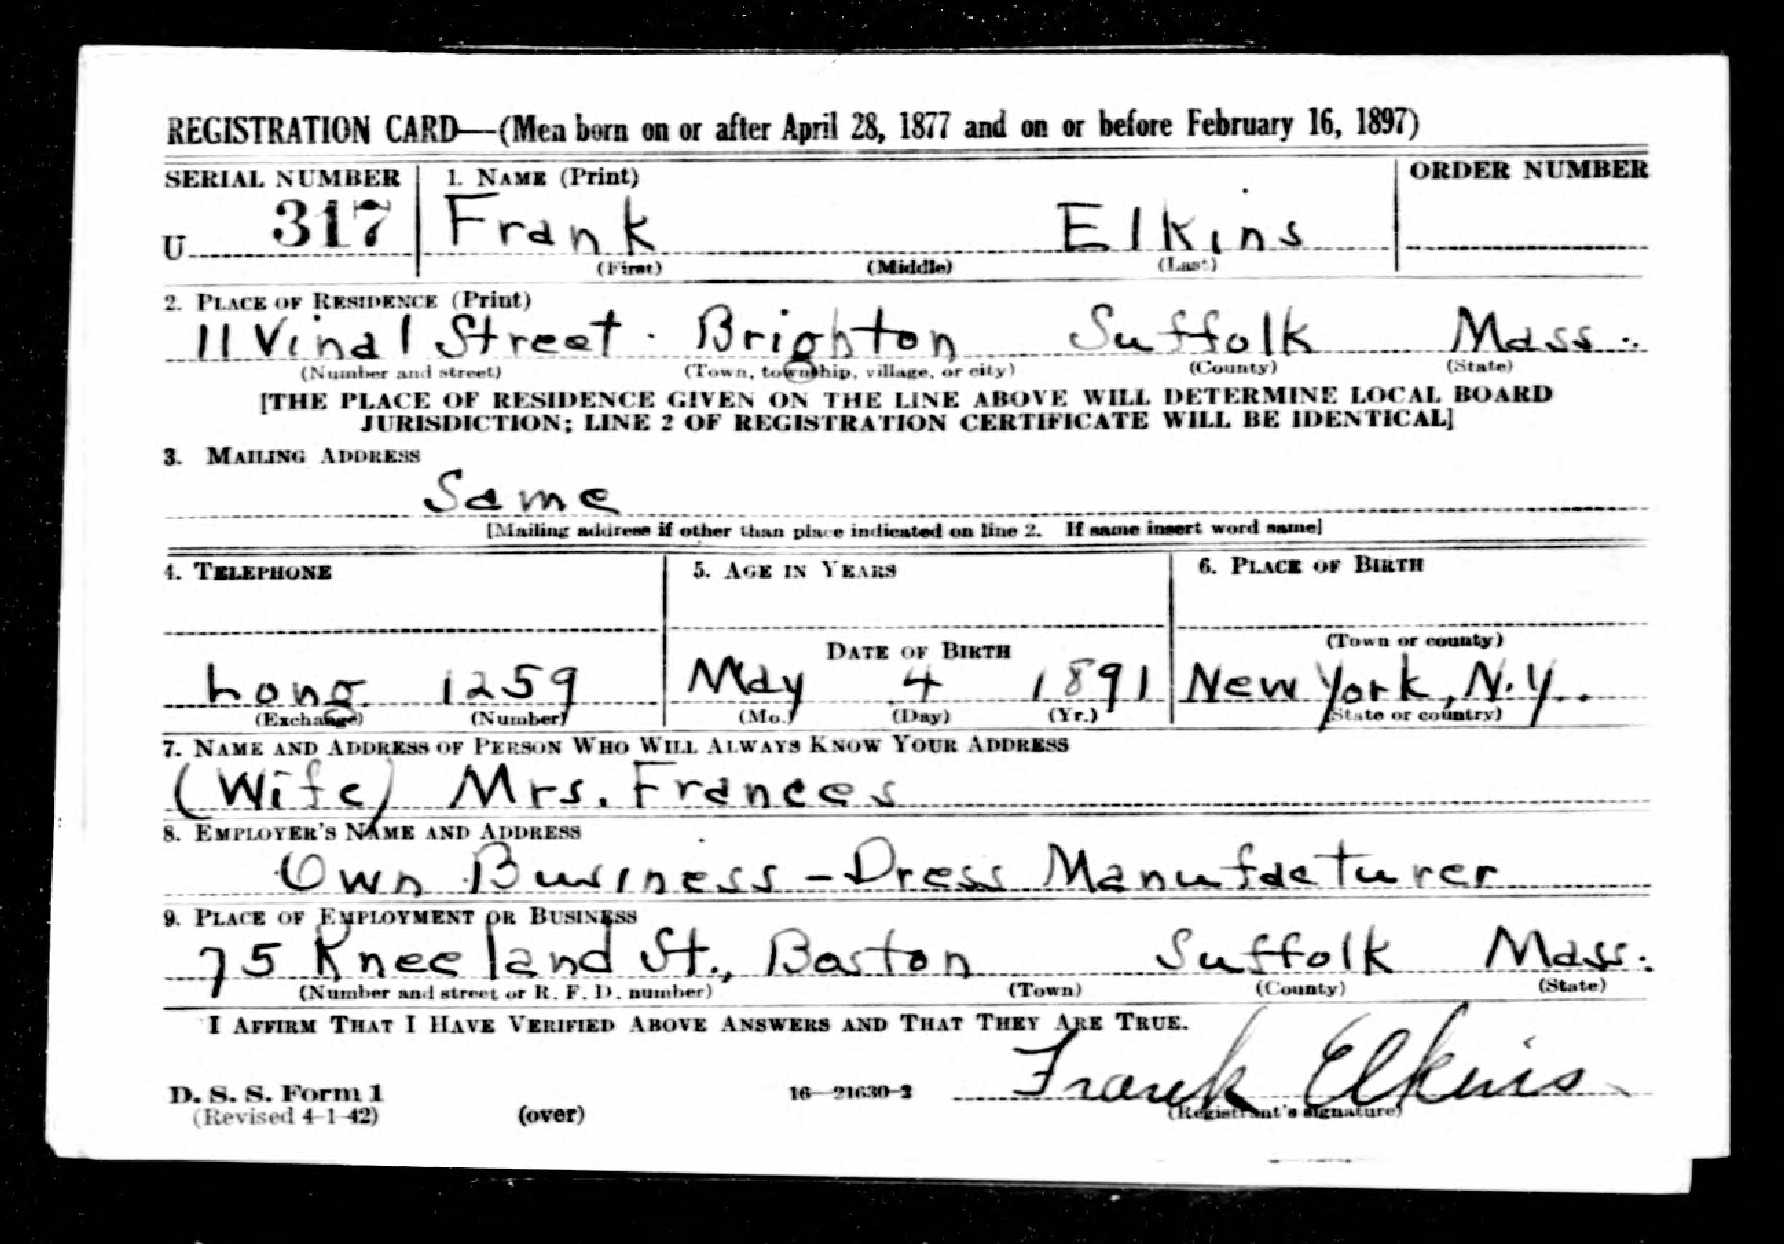 REGISTRATION CARD—(Men born on or after April 28, 1877 and on or before February 16, 1897)
SERIAL NUMBER 1. NAME (Print) ORDER NUMBER
U 317 Frank Elkins
(First) (Middle) (Last)
2. PLACE OF RESIDENCE (Print)
11 Vinal Street. Brighton Suffolk Mass.
(Number and street) (Town, township, village, or city) (County) (State)
[THE PLACE OF RESIDENCE GIVEN ON THE LINE ABOVE WILL DETERMINE LOCAL BOARD
JURISDICTION; LINE 2 OF REGISTRATION CERTIFICATE WILL BE IDENTICAL]
3. MAILING ADDRESS
Same
[Mailing address if other than place indicated on line 2. If same insert word same]
4. TELEPHONE 5. AGE IN YEARS 6. PLACE OF BIRTH
DATE OF BIRTH (Town or county)
Long 1259 May 4 1891 New York, N.Y.
(Exchange) (Number) (Mo.) (Day) (Yr.) (State or country)
7. NAME AND ADDRESS OF PERSON WHO WILL ALWAYS KNOW YOUR ADDRESS
(Wife) Mrs. Frances
8. EMPLOYER'S NAME AND ADDRESS
Own Business - Dress Manufacturer
9. PLACE OF EMPLOYMENT OR BUSINESS
75 Kneeland St., Boston Suffolk Mass.
(Number and street or R. F. D. number) (Town) (County) (State)
I AFFIRM THAT I HAVE VERIFIED ABOVE ANSWERS AND THAT THEY ARE TRUE.
Frank Elkins
D. S. S. Form 1 16—21630-2
(Revised 4-1-42) (over) (Registrant's signature)